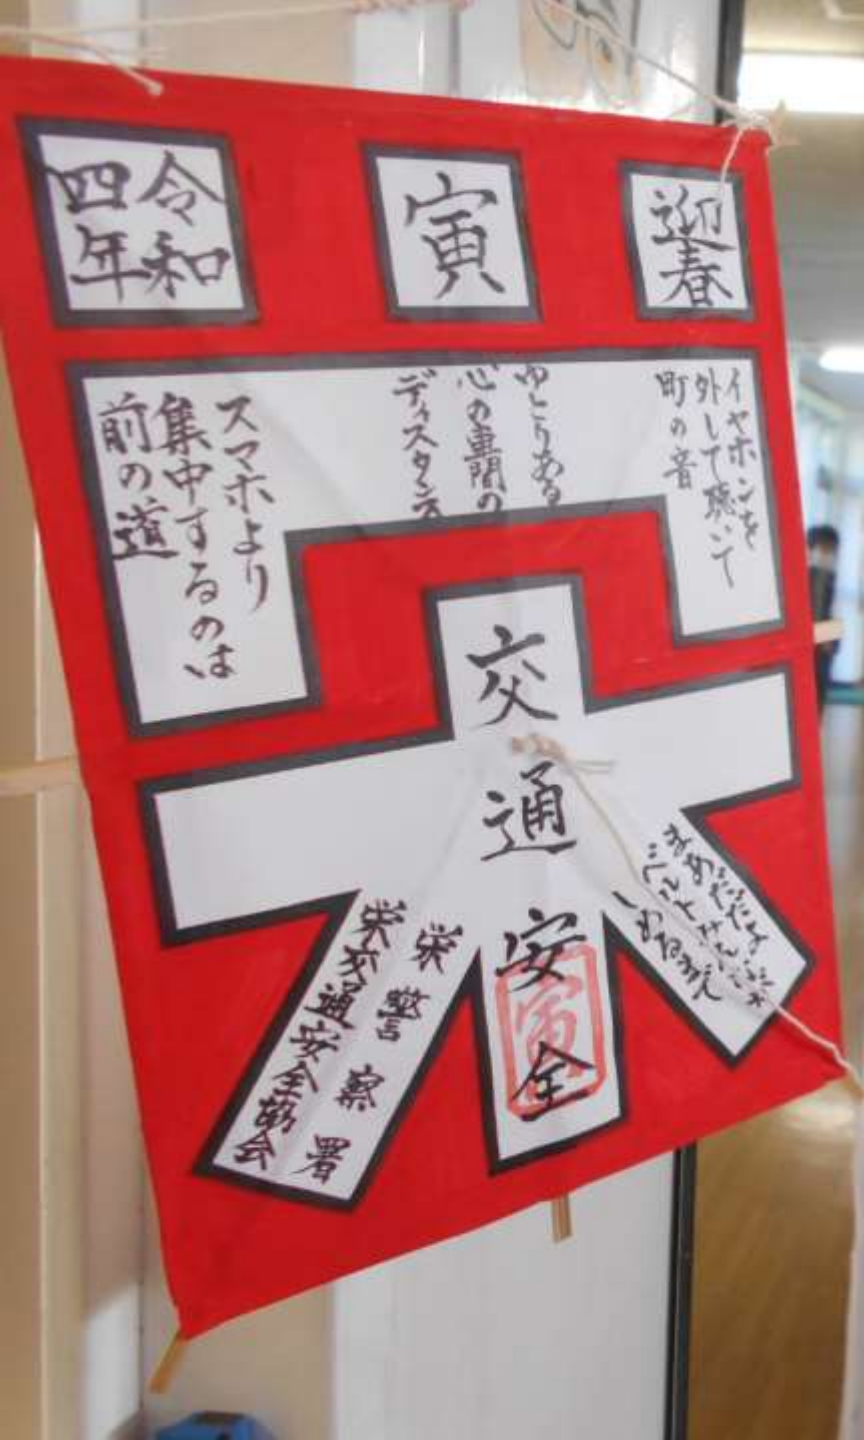 迎春
寅
令和
四年
イヤホンを
外して聴いて
町の音
ゆとりある
心の車間の
ディスタンス
スマホより
集中するのは
前の道
交通安全
寅
まあだだよ
栄警察署
栄交通安全協会